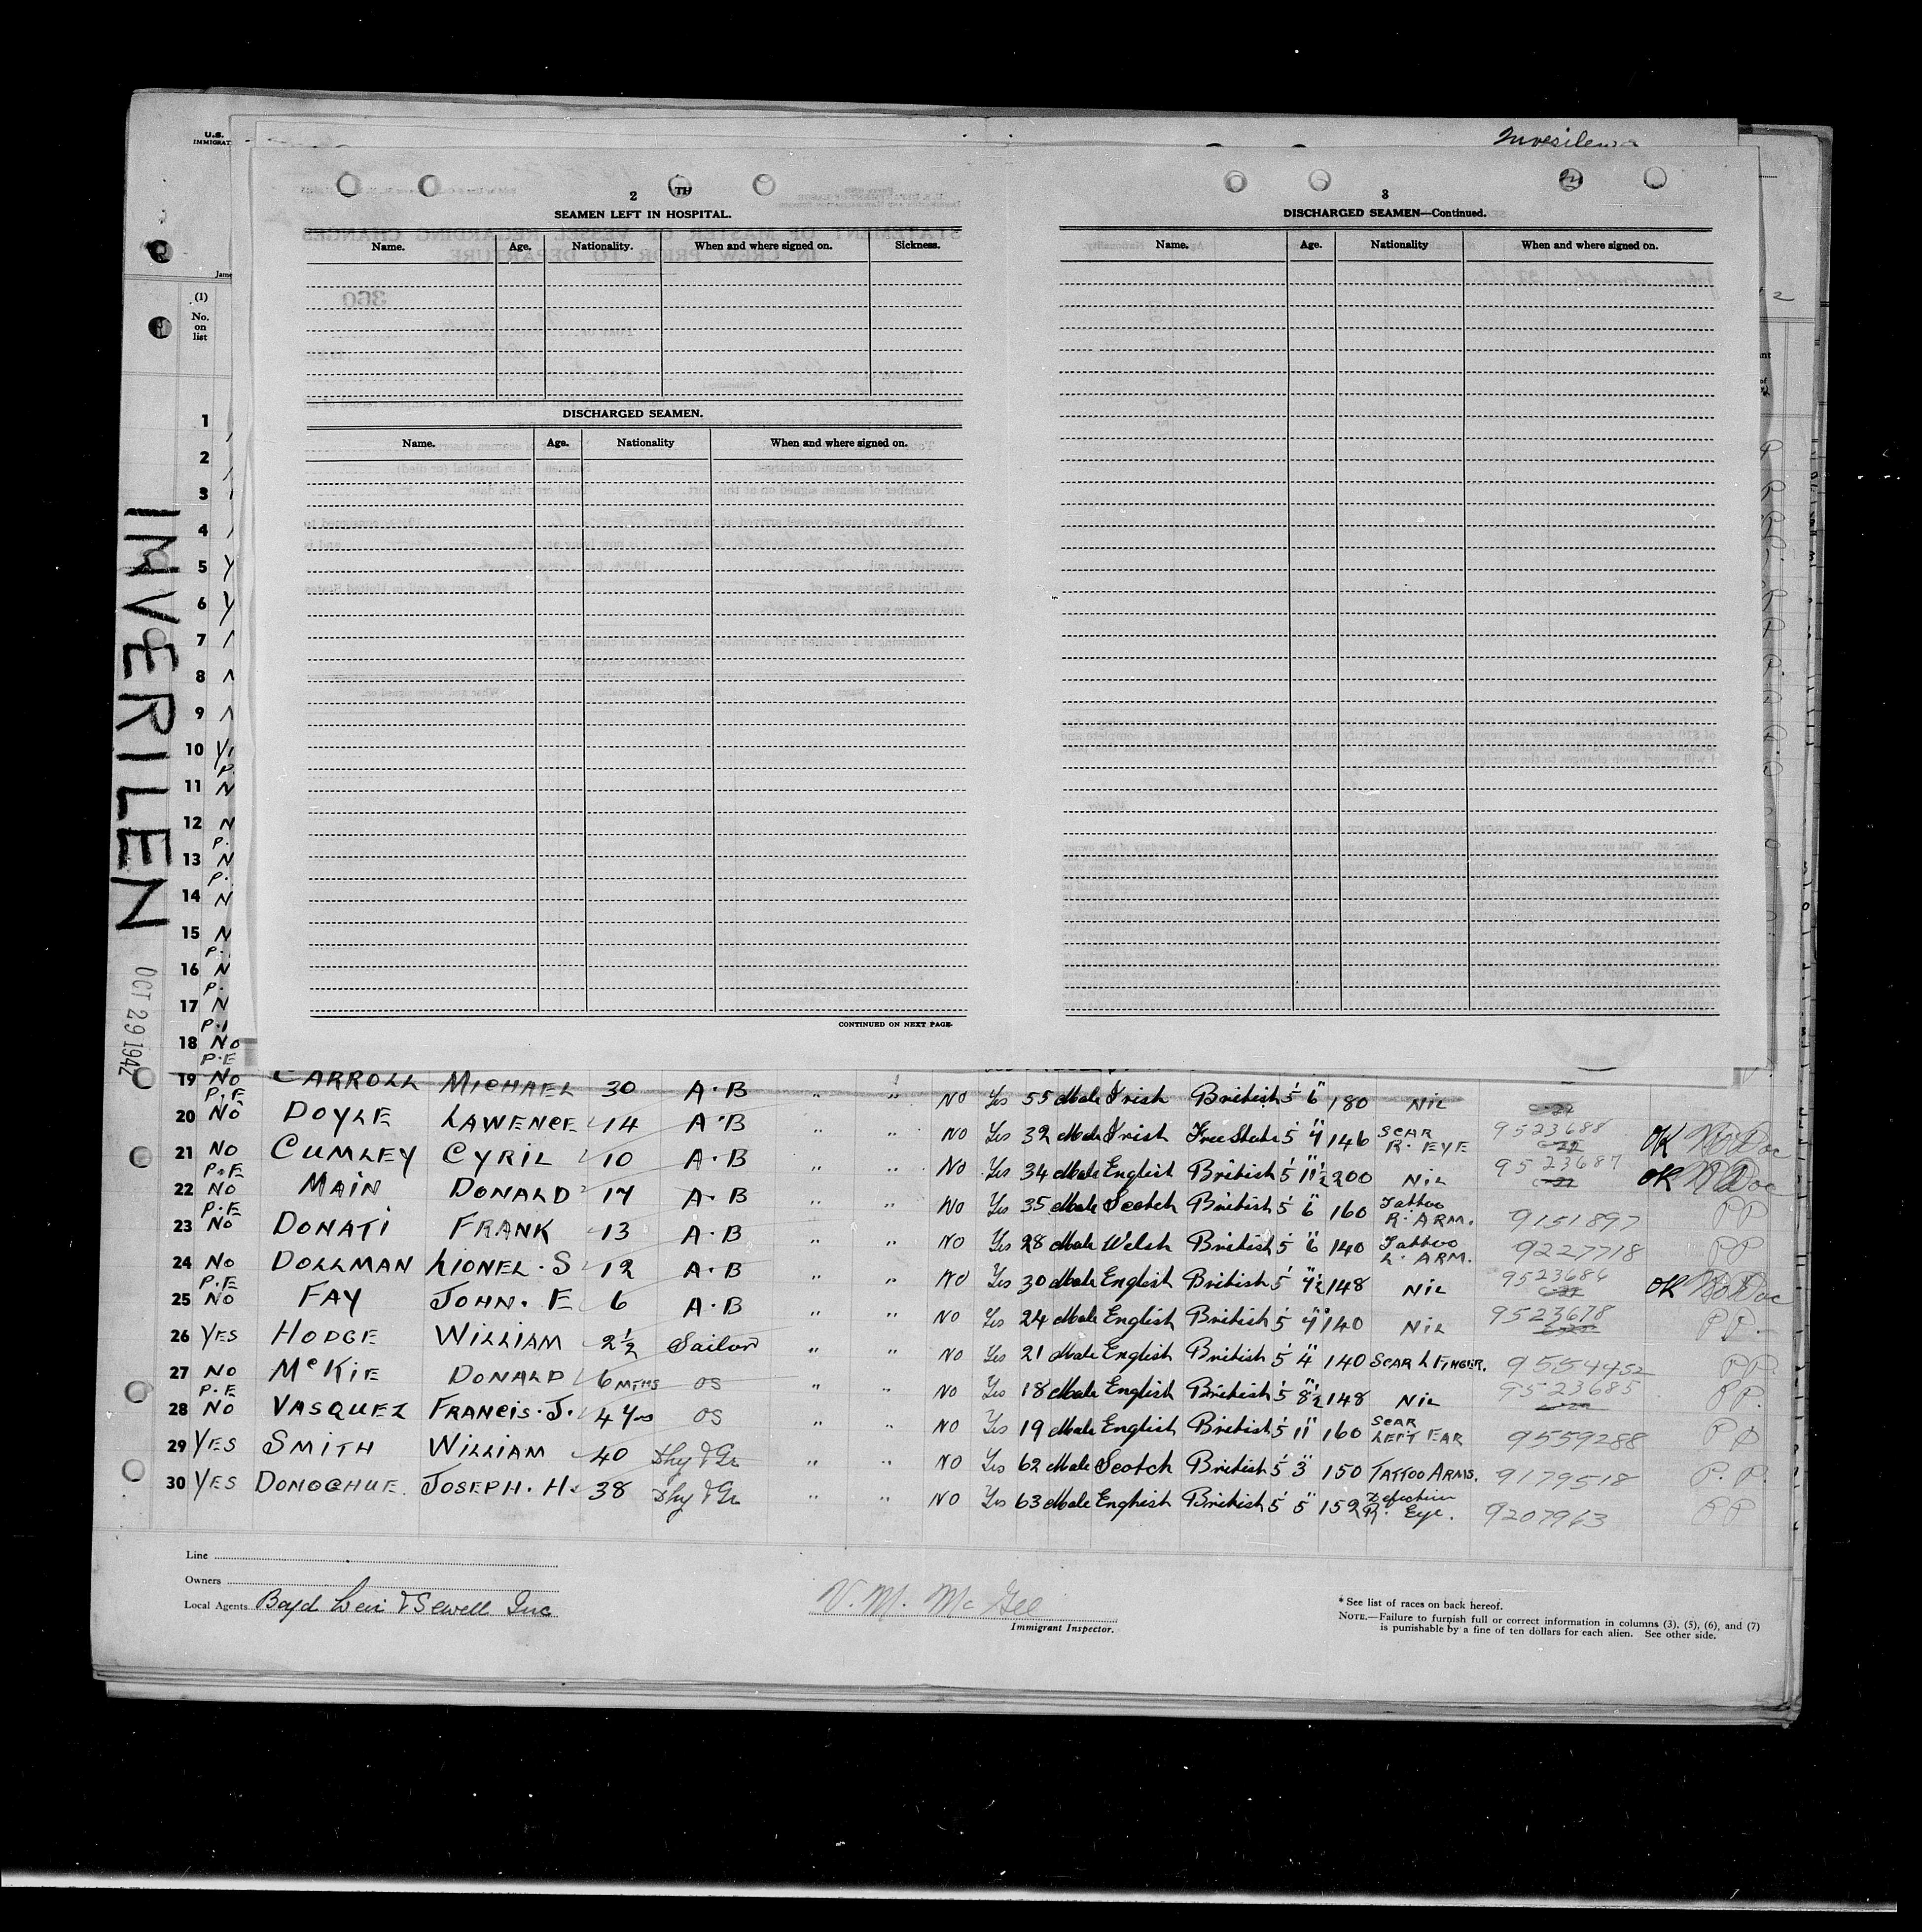 U.S.
IMMIGRAT
Inverilen
2
TH
SEAMEN LEFT IN HOSPITAL.
Name. Age. Nationality. When and where signed on. Sickness.
DISCHARGED SEAMEN.
Name. Age. Nationality When and where signed on.
CONTINUED ON NEXT PAGE.
3
DISCHARGED SEAMEN—Continued.
Name. Age. Nationality When and where signed on.
(1)
No.
on
list
INVERILEN
OCT 29 1942
1
2
3
4
5 Y
6 Y
7
8
9
10
11 N
12 N
P.
13 N
P.
14 N
15 N
P.
16 N
P.
17 N
P.
18 NO
P.E
19 NO CARROLL MICHAEL 30 A.B " " NO Yes 55 Male Irish British 5' 6" 180 NIL
P.E
20 NO DOYLE LAWENCE 14 A.B " " NO Yes 32 Male Irish Free State 5' 4" 146 SCAR R. EYE 9523688 OK No Doc
21 NO CUMLEY CYRIL 10 A.B " " NO Yes 34 Male English British 5' 11½" 200 NIL 9523687 OK No Doc
P.E
22 NO MAIN DONALD 14 A.B " " NO Yes 35 Male Scotch British 5' 6" 160 Tattoo R. ARM. 9151897 PP
P.E
23 NO DONATI FRANK 13 A.B " " NO Yes 28 Male Welsh British 5' 6" 140 Tattoo L. ARM. 9227718 PP
24 NO DOLLMAN LIONEL. S 12 A.B " " NO Yes 30 Male English British 5' 4½" 148 NIL 9523686 OK No Doc
P.E
25 NO FAY JOHN. E 6 A.B " " NO Yes 24 Male English British 5' 4" 140 NIL 9523678 PP.
26 YES HODGE WILLIAM 2½ Sailor " " NO Yes 21 Male English British 5' 4" 140 SCAR L FINGER. 9554452 PP
27 NO McKIE DONALD 6 MTHS OS " " NO Yes 18 Male English British 5' 8½" 148 NIL 9523685 PP.
P.E
28 NO VASQUEZ FRANCIS. J. 4 Yrs OS " " NO Yes 19 Male English British 5' 11" 160 SCAR LEFT EAR 9559288 PP
29 YES SMITH WILLIAM 40 " " NO Yes 62 Male Scotch British 5' 3" 150 TATTOO ARMS. 9179518 P.P.
30 YES DONOGHUE. JOSEPH. H. 38 " " NO Yes 63 Male English British 5' 5" 152 Defective R. Eye. 9207963 PP
Line
Owners
Local Agents Boyd Weir & Sewell Inc
V. M. McGee
Immigrant Inspector.
* See list of races on back hereof.
NOTE.—Failure to furnish full or correct information in columns (3), (5), (6), and (7)
is punishable by a fine of ten dollars for each alien. See other side.